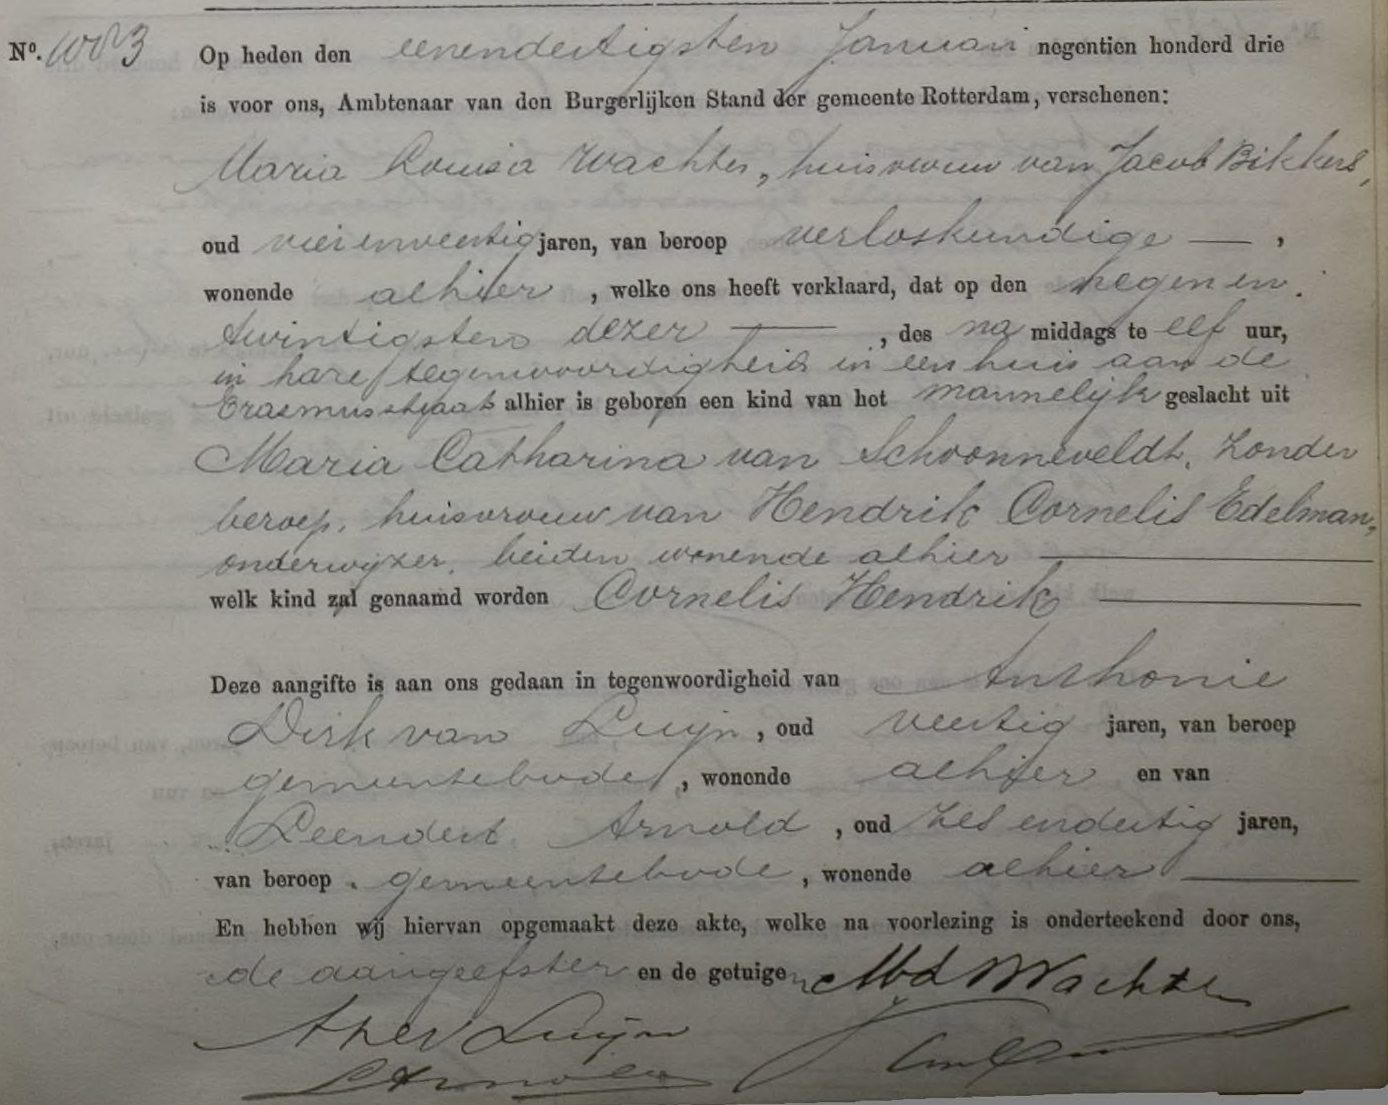 No. 1083 Op heden den eenendertigsten Januari negentien honderd drie
is voor ons, Ambtenaar van den Burgerlijken Stand der gemeente Rotterdam, verschenen:
Maria Louisa Wachter, huisvrouw van Jacob Bikkers,
oud vierenveertig jaren, van beroep verloskundige — ,
wonende alhier , welke ons heeft verklaard, dat op den negenen
twintigsten dezer — , des na middags te elf uur,
in hare tegenwoordigheid in een huis aan de
Erasmusstraat alhier is geboren een kind van het mannelijk geslacht uit
Maria Catharina van Schoonneveldt, zonder
beroep, huisvrouw van Hendrik Cornelis Edelman,
onderwijzer, beiden wonende alhier —
welk kind zal genaamd worden Cornelis Hendrik —
Deze aangifte is aan ons gedaan in tegenwoordigheid van Anthonie
Dirk van Luijn , oud veertig jaren, van beroep
gemeentebode , wonende alhier en van
Leendert Arnold , oud zes endertig jaren,
van beroep gemeentebode , wonende alhier —
En hebben wij hiervan opgemaakt deze akte, welke na voorlezing is onderteekend door ons,
de aangeefster en de getuigen MLWachter
ADvLuijn
LArnold